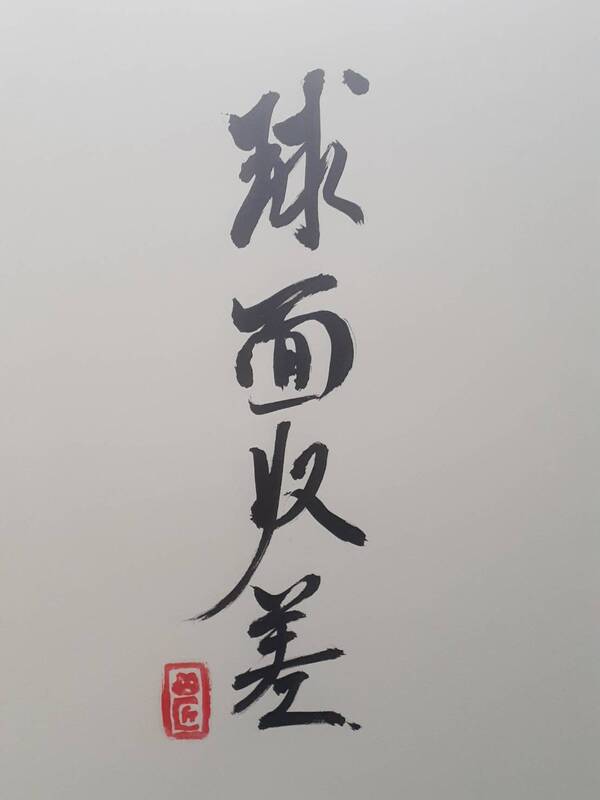 球面収差